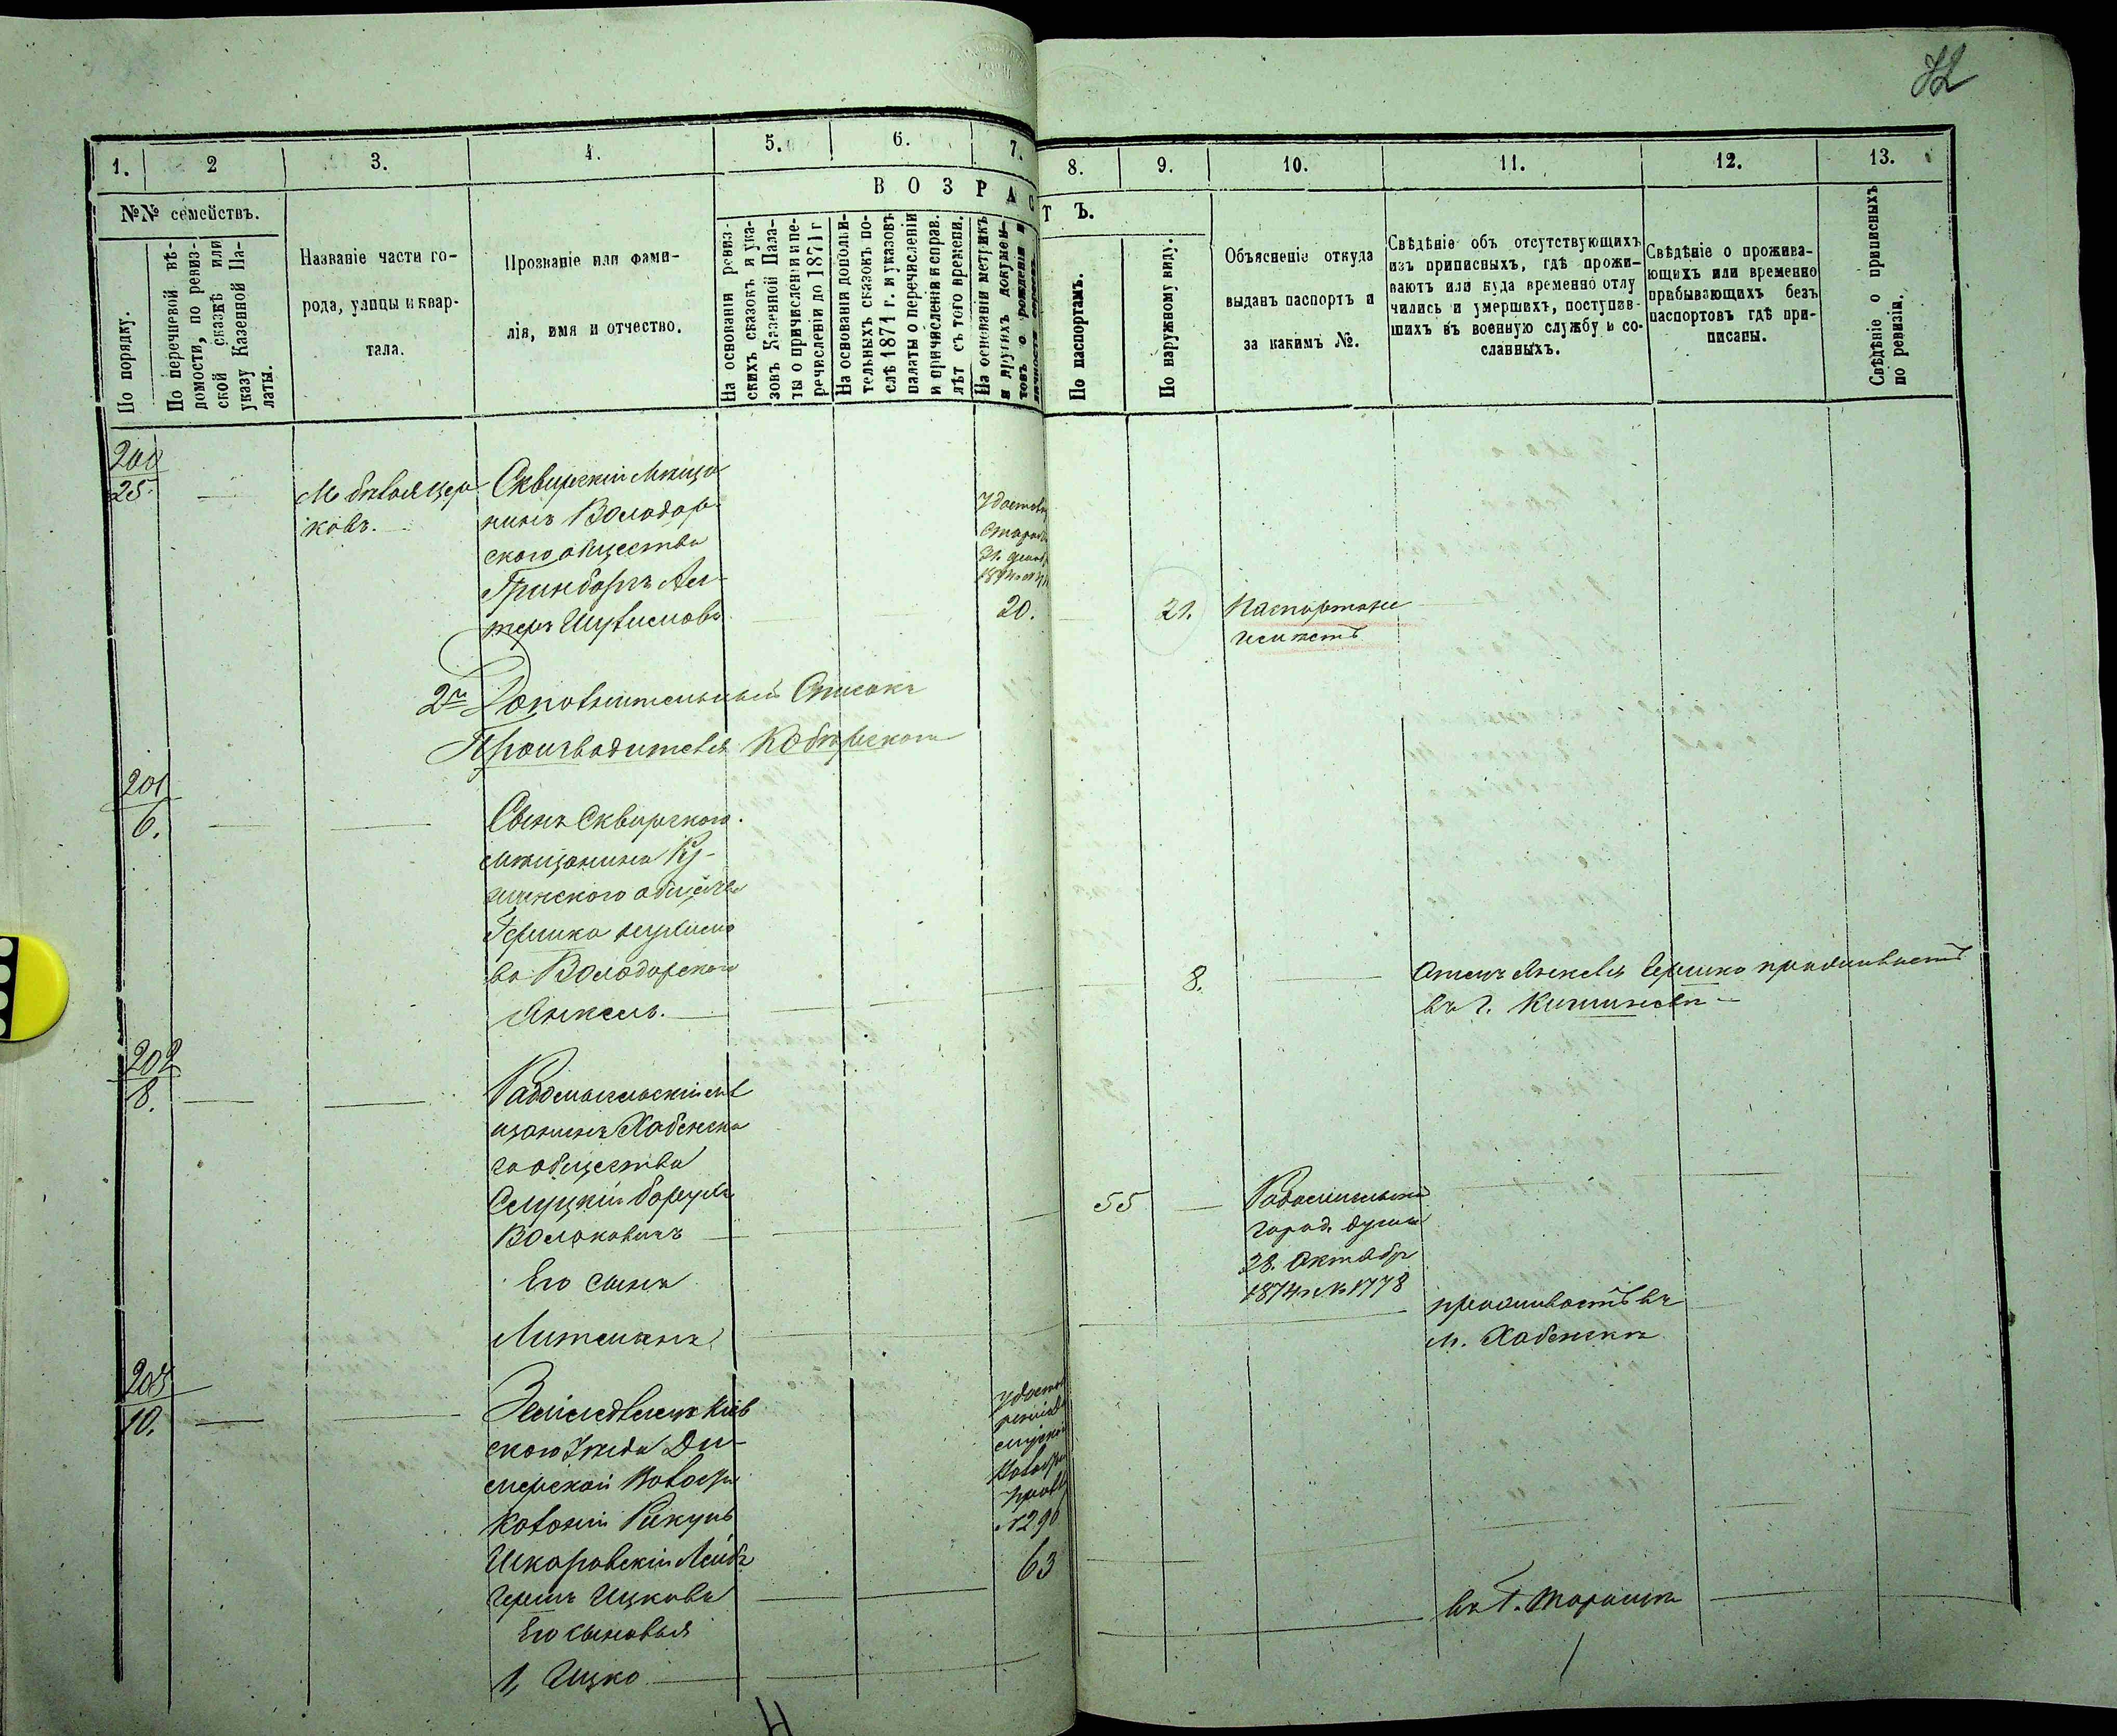 82
1. 2 3. 4. 5. 6. 7. 8. 9. 10. 11. 12. 13.
В О З Р А С Т Ъ.
№№ семействъ.
По порядку.
По перечневой вѣ-
домости, по ревиз-
ской сказкѣ или
указу Казенной Па-
латы.
Названіе части го-
рода, улицы и квар-
тала.
Прозваніе или фами-
лія, имя и отчество.
На основаніи ревиз-
скихъ сказокъ и ука-
зовъ Казенной Пала-
ты о причисленіи и пе-
речисленіи до 1871 г
На основаніи дополни-
тельныхъ сказокъ по-
слѣ 1871 г. и указовъ
палаты о перечисленіи
и причисленіи и справ.
лѣт съ того времени.
На основаніи метрикъ
и другихъ докумен-
товъ о рожденіи и
По паспортамъ.
По наружному виду.
Объясненіе откуда
выданъ паспортъ и
за какимъ №.
Свѣдѣніе объ отсутствующихъ
изъ приписныхъ, гдѣ прожи-
ваютъ или куда временно отлу
чились и умершихъ, поступив-
шихъ въ военную службу и со-
сланныхъ.
Свѣдѣніе о прожива-
ющихъ или временно
прибывающихъ безъ
паспортовъ гдѣ при-
писаны.
Свѣдѣніе о приписныхъ
по ревизіи.
200
25.
М Бѣлая Цер
ковь.
Сквирскій Мѣща
нинъ Володар
ского общества
Гринбаргъ
20.
21.
Паспорта не
имѣетъ
2й Дополнительный Списокъ
Производителя Кобтрского
201
6.
Сынъ Сквирского
мѣщанина
общества
Гершка
ва Володарского
Янкель.
8.
Отецъ Янкеля Гершко проживаетъ
въ г. Кишиневѣ
202
8.
Радомысльскій мѣ
щанинъ Хабенска
го общества
Слуцкій Борухъ
Волоковичъ
Его сынъ
Литманъ
55
Радомысльской
город. думы
28. Октябр
1874 г № 1778
проживаетъ въ
м. Хабенкѣ
203
10.
Земледѣлецъ Кіев
ского Уѣзда Ди-
мерской Волости
Колоніи Рикунь
Шкаровскій Лейб
Гершъ Ицковъ
Его сыновья
1, Ицко
№ 296
63
въ Г. Таращѣ